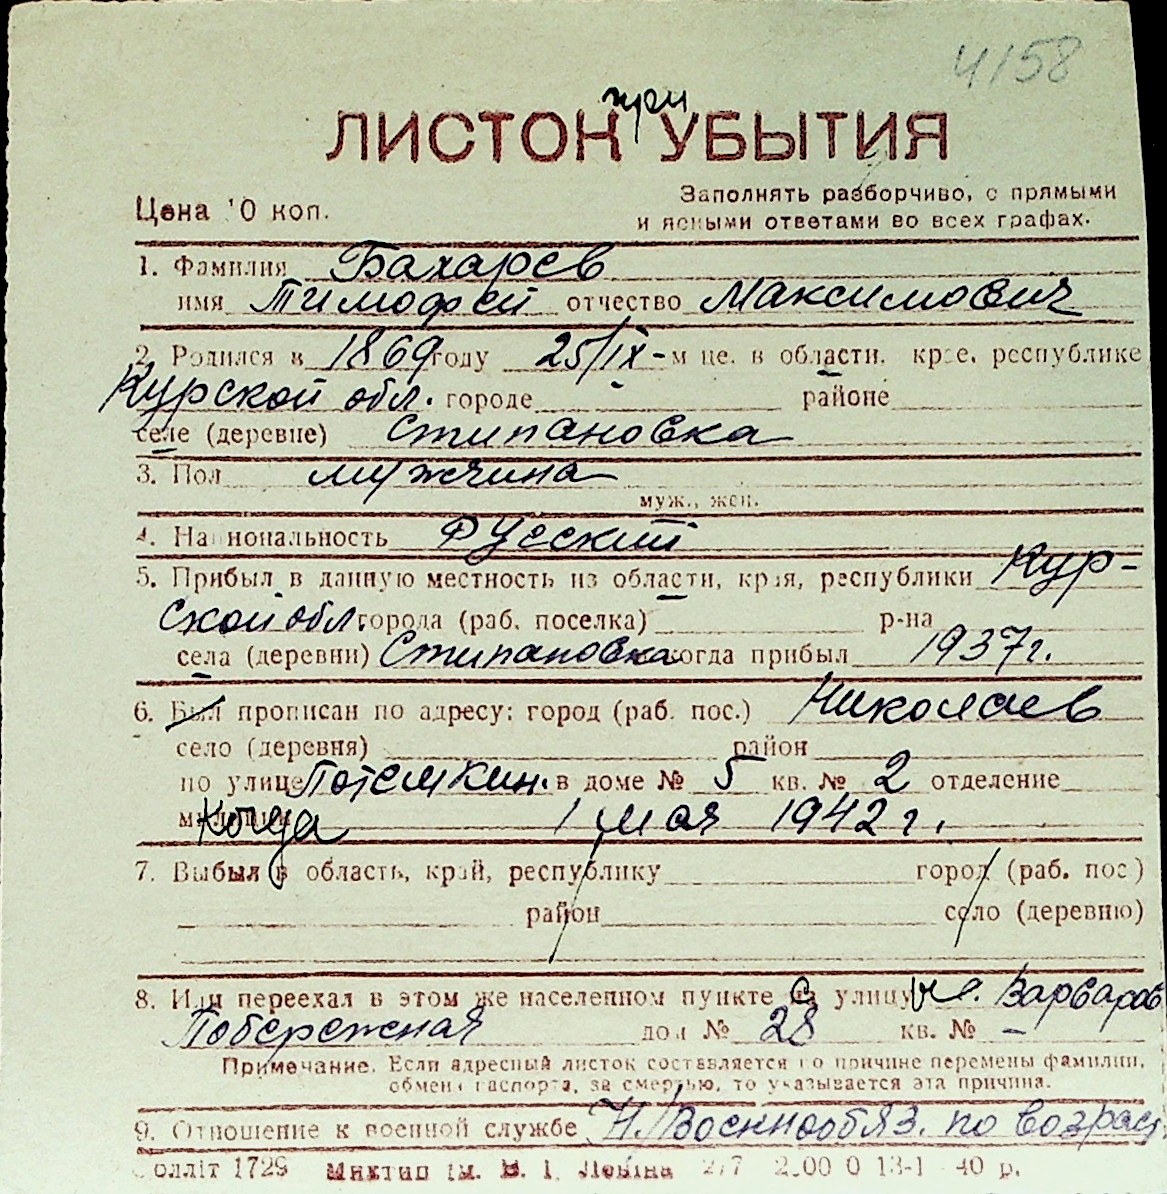 4158
при
ЛИСТОК УБЫТИЯ
Цена 10 коп.
Заполнять разборчиво, с прямыми
и ясными ответами во всех графах.
1. Фамилия Бахарев
имя Тимофей отчество Максимович
2. Родился в 1869 году 25/IX - м це. в области, крае, республике
Курской обл. городе районе
селе (деревне) Стипановка
3. Пол мужчина
муж., жен.
4. Национальность Русский
5. Прибыл в данную местность из области, края, республики Кур-
ской обл. города (раб. поселка) р-на
села (деревни) Стипановка когда прибыл 1937 г.
6. Был прописан по адресу: город (раб. пос.) Николаев
село (деревня) район
по улице Потемкин. в доме № 5 кв. № 2 отделение
милиции Когда 1 мая 1942 г.
7. Выбыл в область, край, республику город (раб. пос)
район село (деревню)
8. Или переехал в этом же населенном пункте с улицу Варваров
Побережная дом № 28 кв. № -
Примечание. Если адресный листок составляется по причине перемены фамилии,
обмена паспорта, за смертью, то указывается эта причина.
9. Отношение к военной службе Н/Военнообяз. по возраст
олліт 1729 Миктип ім. В. І. Леніна 277 2000 0 13-1 40 р.